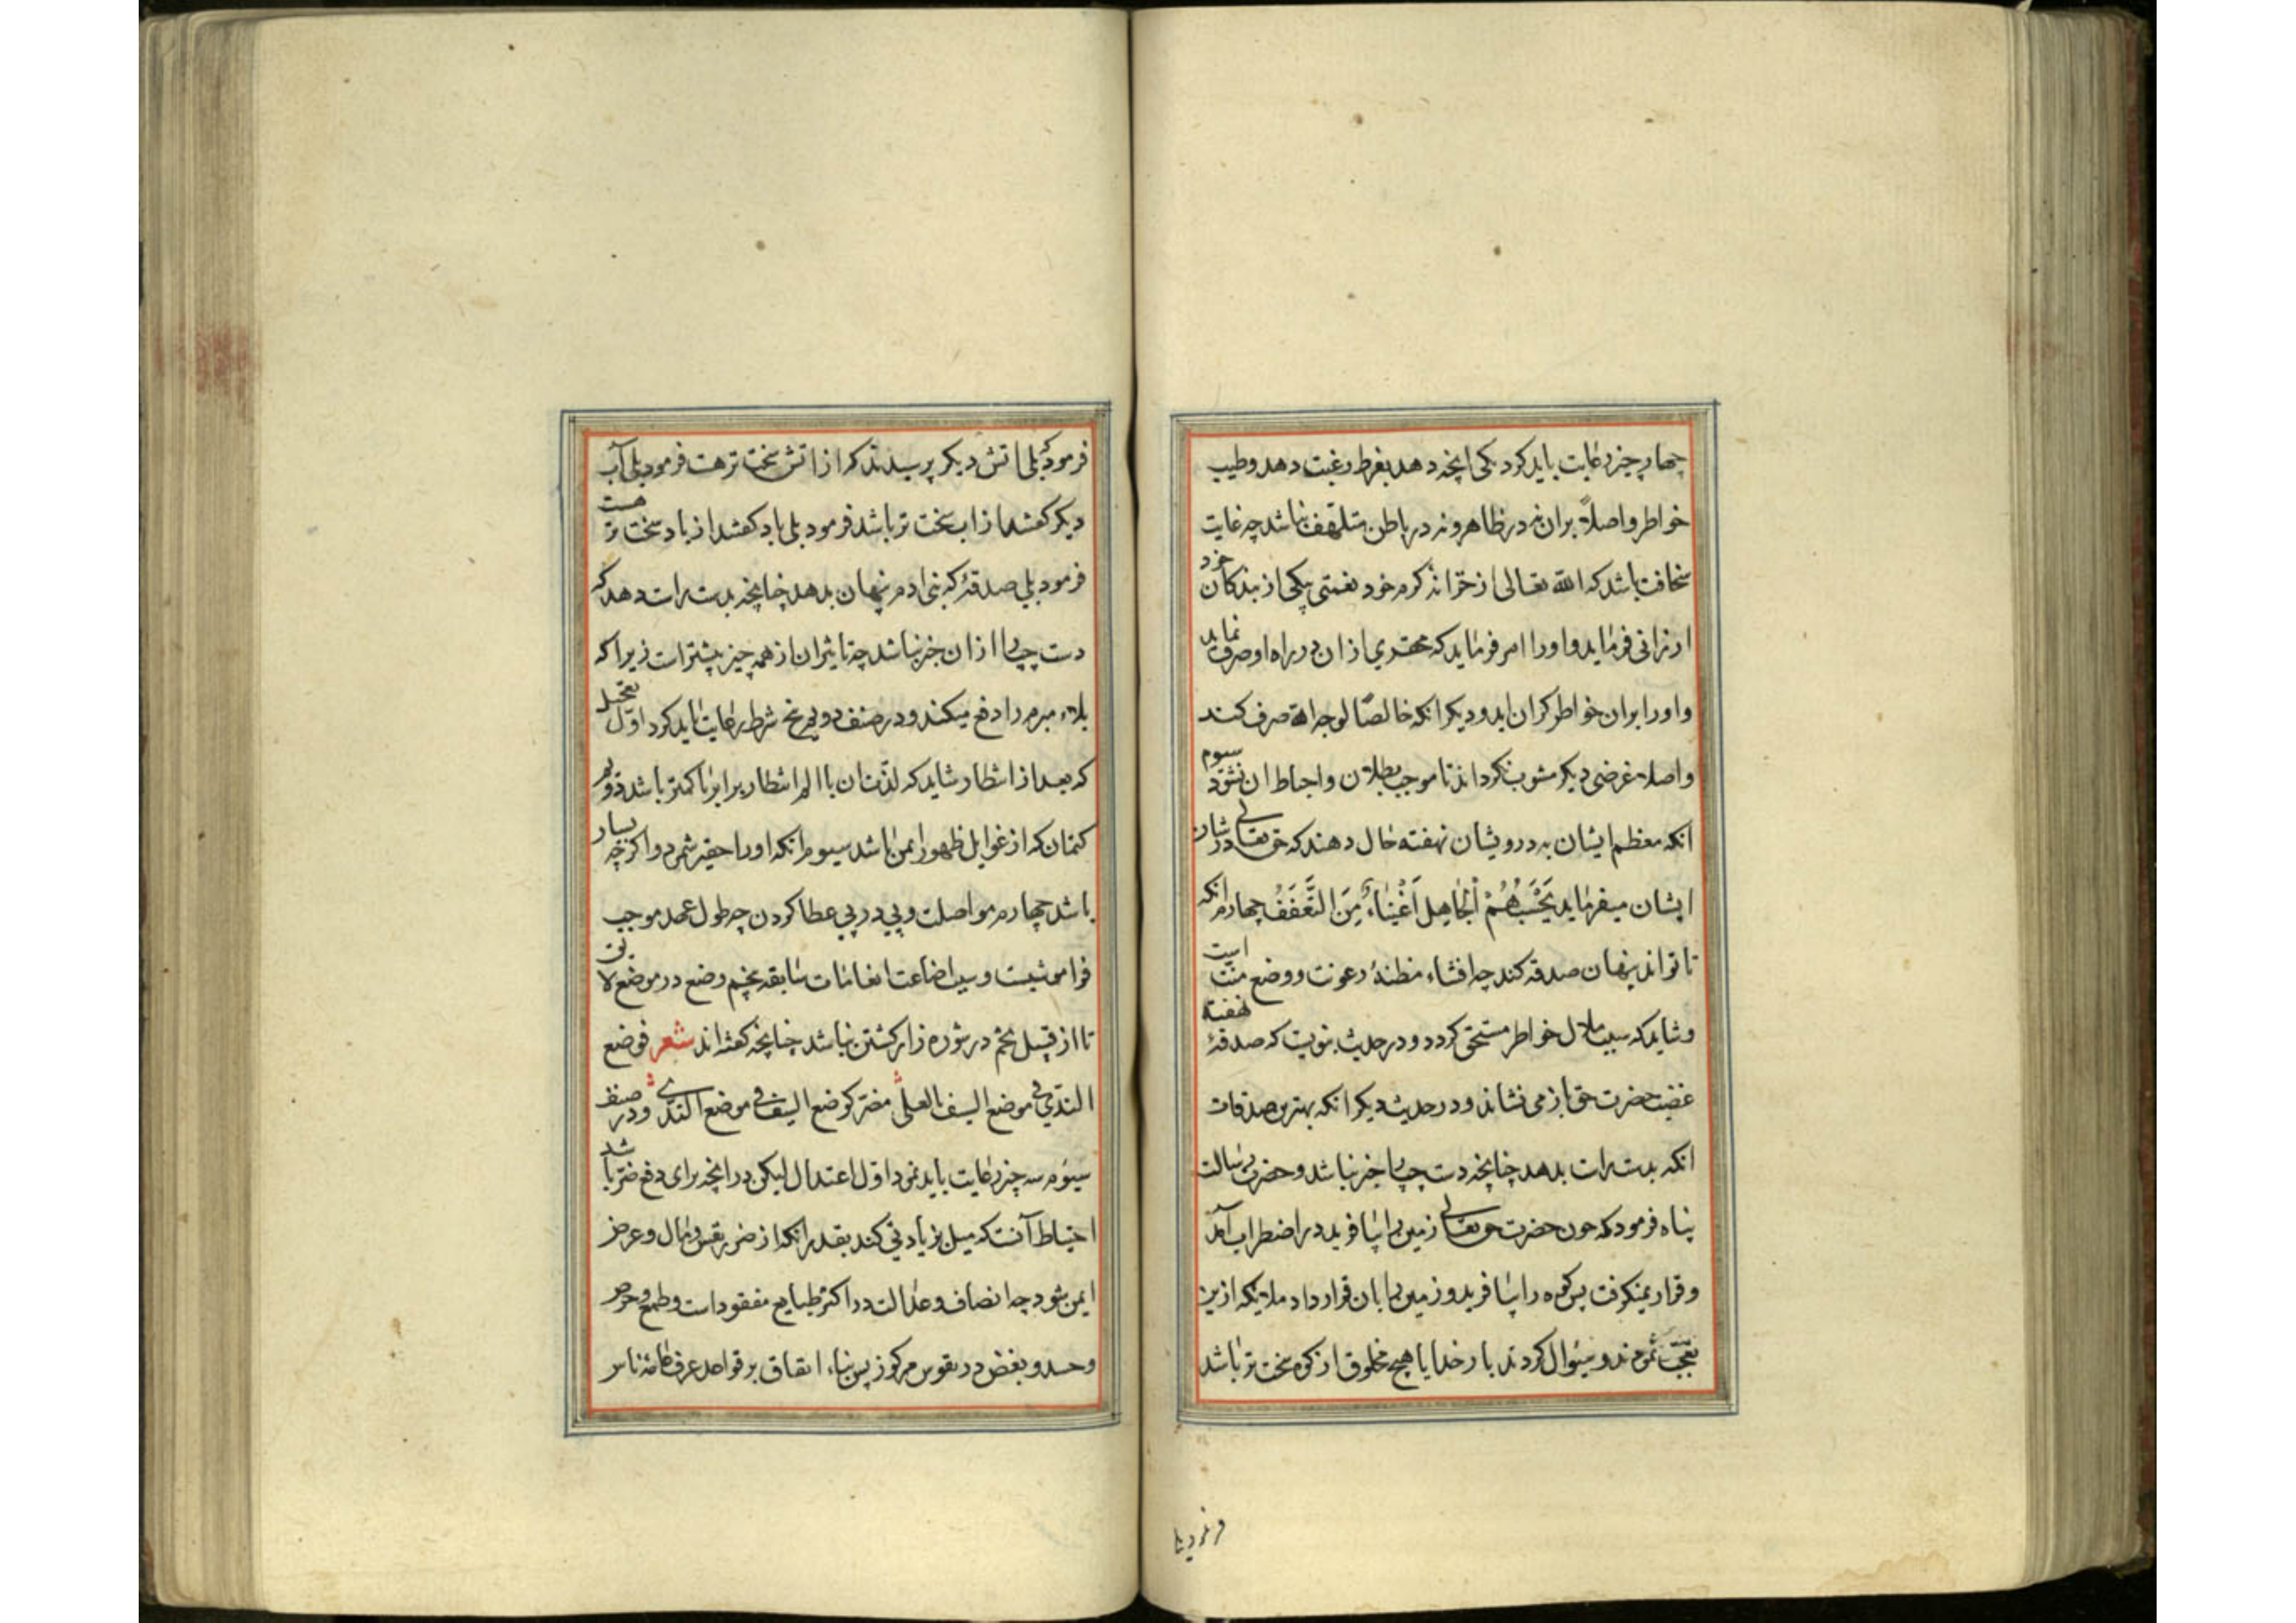 چهار چیز رعایت باید کرد یکی انچه دهد بفرط رغبت دهد و طیب
خواطر و اصلاً بران نه در ظاهر و نه در باطن متلهف نباشد چه غایت
سخافت باشد که الله تعالی از خزانه کرم خود نعمتی بیکی از بندکان خود
ارزانی فرماید و اورا امر فرماید که محقری ازان در راه او صرف نماید
و اورا بران خواطر کران اید و دیکر انکه خالصًا لوجه الله صرف کند
و اصلا غرضی دیکر مشوب نکرداند تا موجب بطلان و احباط ان نشود سیوم
انکه معظم ایشان به درویشان نهفته حال دهند که حق تعالی در شان
ایشان میفرماید یَحْسَبُهُمُ الْجَاهِل اَغْنِیَاءَ مِنَ التَّعَفَفُ چهارم انکه
تا تواند پنهان صدقه کند چه افشاء مظنهٔ رعونت و وضع منّت است
و شاید که سبب ملال خواطر مستحق کردد و در حدیث نبویت که صدقهٔ نهفته
غضب حضرت حق باز می نشاند و در حدیث دیکر انکه بهترین صدقات
انکه بدست راست بدهد چنانچه دست چپ را خبر نباشد و حضرت رسالت
پناه فرمود که چون حضرت حق تعالی زمین را بیافرید در اضطراب آمد
و قرار نمیکرفت پس کوه را بیافرید و زمین را بان قرار داد ملایکه ازین
تعجب نمودند و سئوال کردند بار خدایا هیچ مخلوق از کوه سخت تر باشد
فرمود که بلی اتش دیکر پرسیدند که از اتش سخت تر هست فرمود بلی آب
دیکر کفتند از اب سخت تر باشد فرمود بلی باد کفتند از باد سخت تر هست
فرمود بلی صدقهٔ که بنی ادم پنهان بدهد چنانچه بدست راست دهد که
دست چپ را ازان خبر نباشد چه تاثیر ان از همه چیز بیشتر است زیرا که
بلاء مبرم را دفع میکند و در صنف دوم پنج شرط رعایت باید کرد اوّل تعجیل
که بعد از انتظار شاید که لذّت ان با الم انتظار برابر یا کمتر باشد دوم
کتمان که از غوایل ظهور ایمن باشد سیوم انکه اورا حقیر شمرد و اکرچه بسیار
باشد چهارم مواصلت و پی در پی عطا کردن چه طول عهد موجب
فراموشیست و سبب اضاعت انعامات سابقه پنجم وضع در موضع لایق
تا از قبیل تخم در شوره زار کشتن نباشد چنانچه کفته اند شعر فوضع
الندی فی موضع السیف بالعلی مضر کوضع السیف فی موضع الندی و در صنف
سیوم سه چیز رعایت باید نمود اوّل اعتدال لیکن در انچه برای دفع ضرر باشد
احتیاط آنست که میل بزیادتی کند بقدر انکه از ضرر نفس و مال و عرض
ایمن شود چه انصاف و عدالت در اکثر طبایع مفقود است و طمع و حرص
و حسد و بغض در نفوس مرکوز پس بناء انفاق بر قواعد عرف عامهٔ ناس